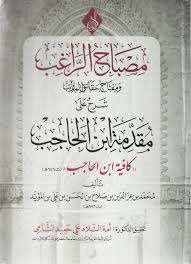 مصباح الراغب
ومفتاح حقائق المآرب
شرح على
مقدمة ابن الحاجب
«كافية ابن الحاجب»
تأليف
محمد بن عز الدين بن صلاح بن الحسن بن علي بن المؤيد
تحقيق الدكتورة: أمة السلام علي حميد الشامي